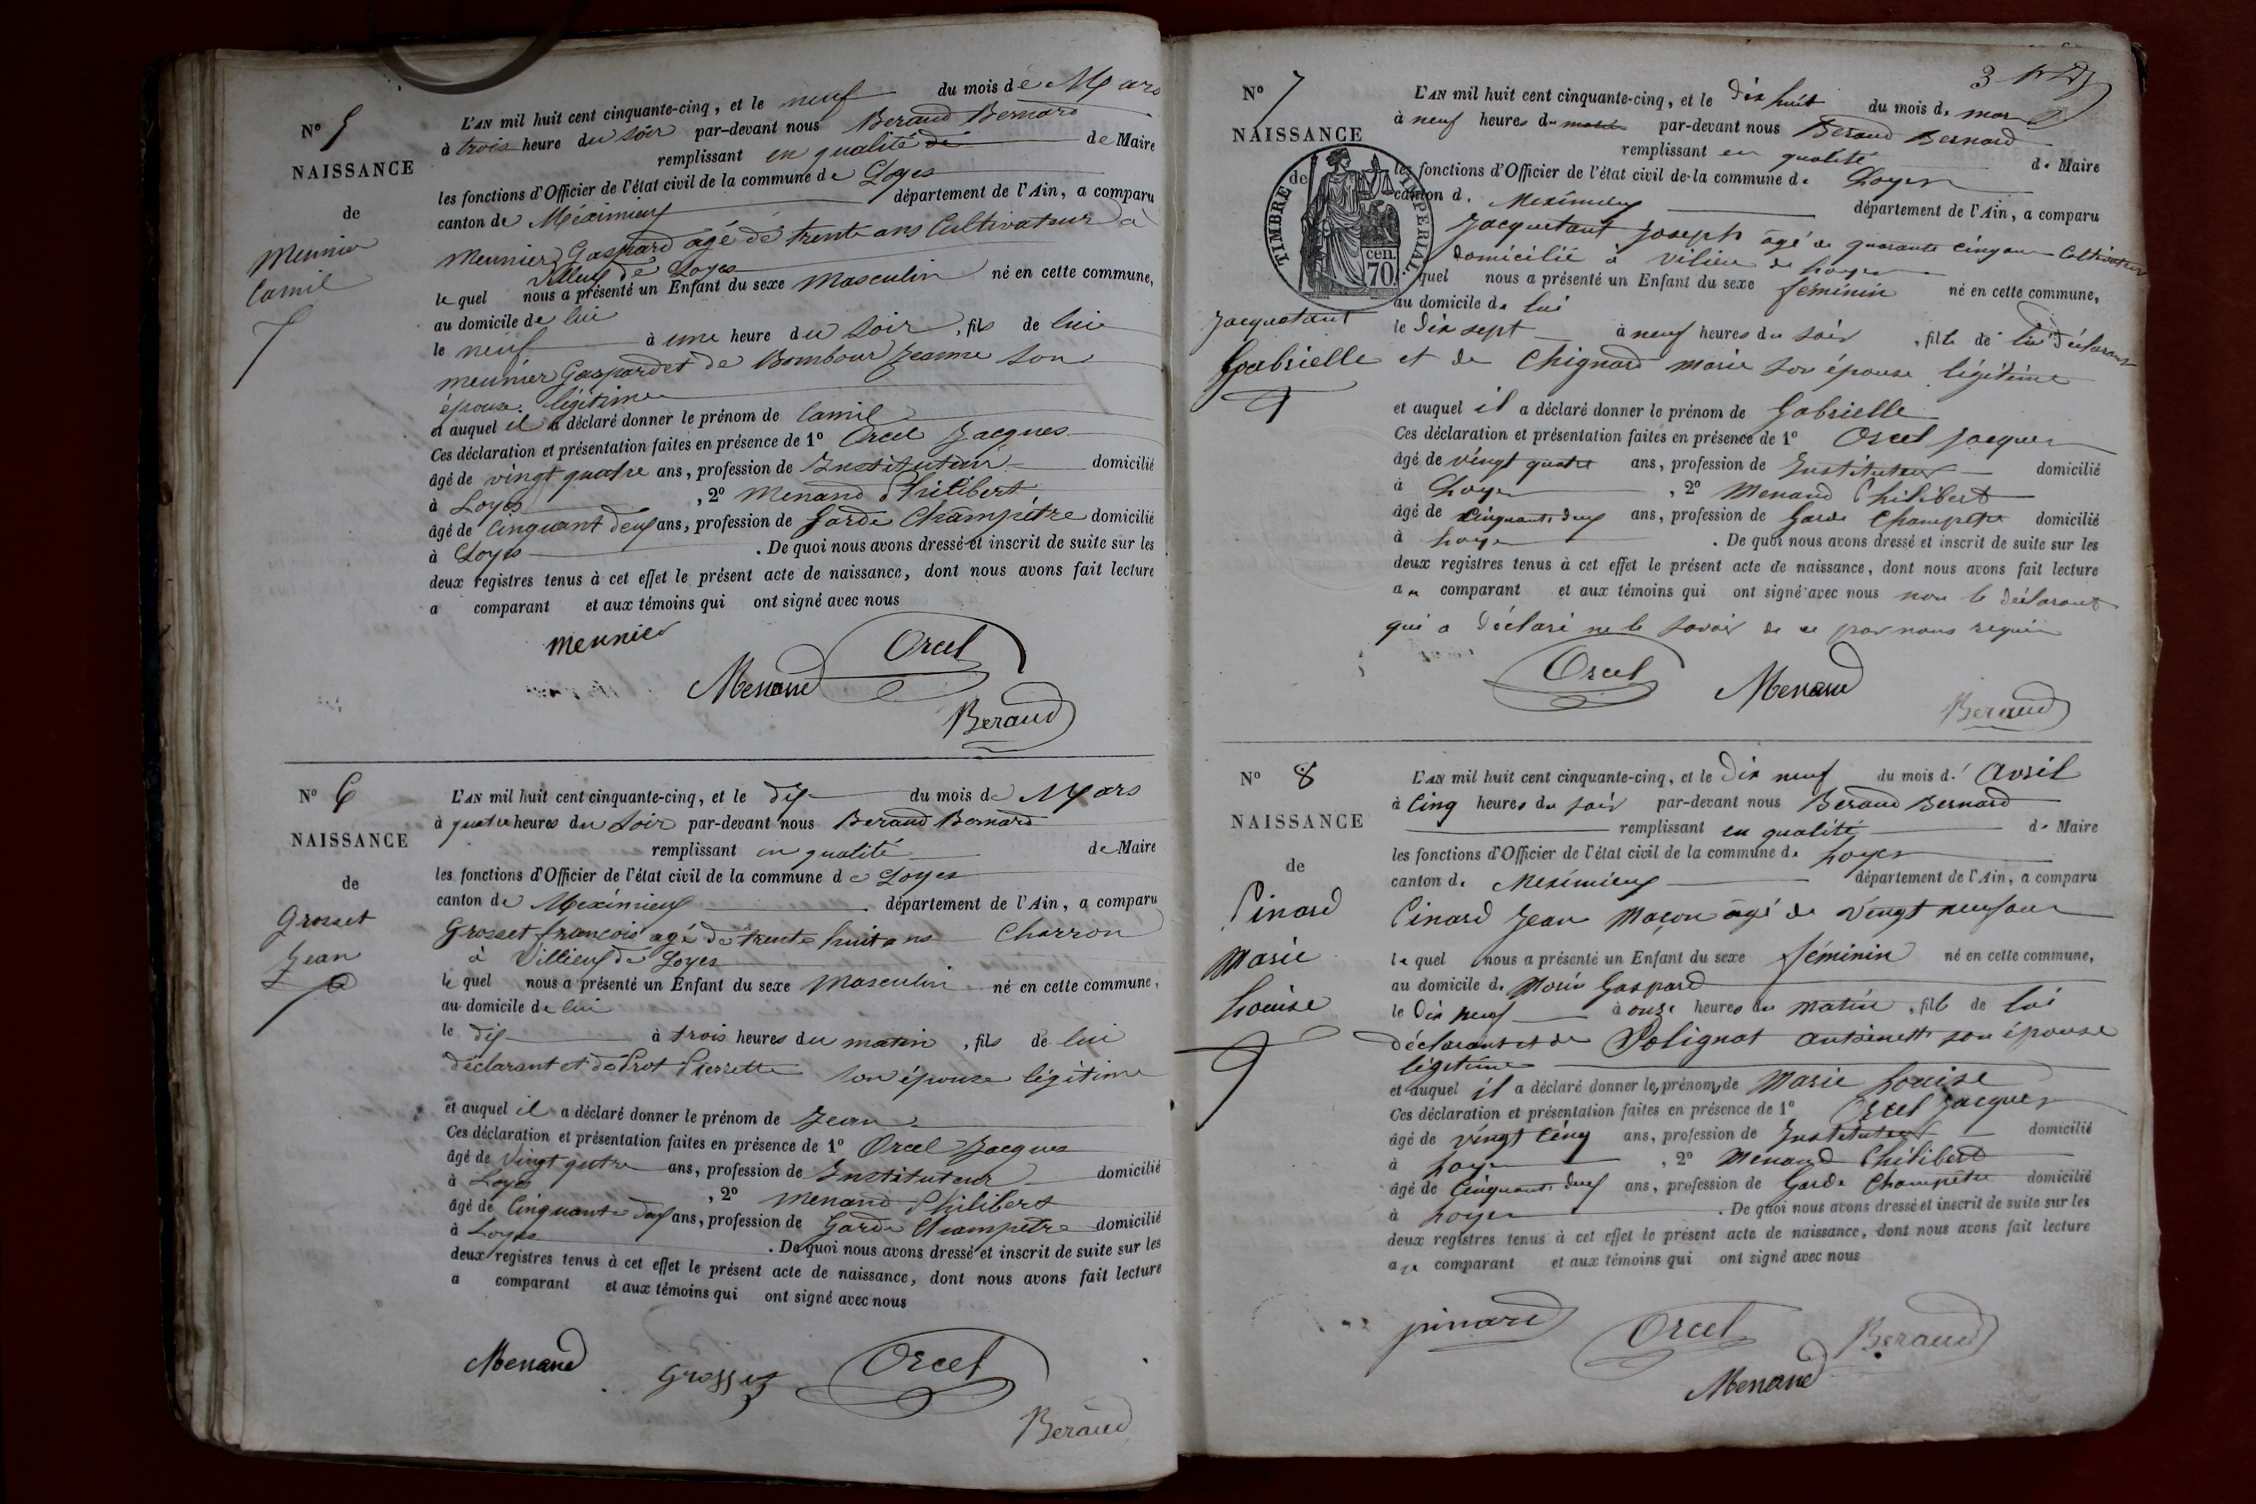 N° 5
NAISSANCE
de
Meunier
Camil
L'AN mil huit cent cinquante-cinq, et le neuf du mois de Mars
à trois heure du soir par-devant nous Beraud Bernard
remplissant en qualité de de Maire
les fonctions d'Officier de l'état civil de la commune de Loyes
canton de Méximieux département de l'Ain, a comparu
Meunier Gaspard agé de trente ans Cultivateur à
Villieux de Loyes
le quel nous a présenté un Enfant du sexe Masculin né en cette commune,
au domicile de lui
le neuf à une heure du soir, fils de lui
meunier Gaspard et de Bombour Jeanne son
épouse légitime
et auquel il a déclaré donner le prénom de Camil
Ces déclaration et présentation faites en présence de 1° Orcel Jacques
âgé de vingt quatre ans, profession de Instituteur domicilié
à Loyes, 2° Menand Philibert
âgé de cinquant deux ans, profession de Garde Champêtre domicilié
à Loyes. De quoi nous avons dressé et inscrit de suite sur les
deux registres tenus à cet effet le présent acte de naissance, dont nous avons fait lecture
a comparant et aux témoins qui ont signé avec nous
meunier
Orcel
Menand
Beraud
N° 6
NAISSANCE
de
Grosset
Jean
L'AN mil huit cent cinquante-cinq, et le dix du mois de Mars
à quatre heures du soir par-devant nous Beraud Bernard
remplissant en qualité de Maire
les fonctions d'Officier de l'état civil de la commune de Loyes
canton de Meximieux département de l'Ain, a comparu
Grosset françois agé de trente huit ans Charron
à Villieux de Loyes
le quel nous a présenté un Enfant du sexe Masculin né en cette commune,
au domicile de lui
le dix à trois heures du matin, fils de lui
déclarant et de Prot Pierrette son épouse légitime
et auquel il a déclaré donner le prénom de Jean
Ces déclaration et présentation faites en présence de 1° Orcel Jacques
âgé de vingt qutre ans, profession de Instituteur domicilié
à Loyes, 2° Menand Philibert
âgé de Cinquante deux ans, profession de Garde Champetre domicilié
à Loyes. De quoi nous avons dressé et inscrit de suite sur les
deux registres tenus à cet effet le présent acte de naissance, dont nous avons fait lecture
a comparant et aux témoins qui ont signé avec nous
Menand
Grosset
Orcel
Beraud
3
N° 7
NAISSANCE
de
TIMBRE IMPERIAL
cen. 70.
Jacquetant
Gabrielle
L'AN mil huit cent cinquante-cinq, et le dix huit du mois de mars
à neuf heures du matin par-devant nous Beraud Bernard
remplissant en qualité de Maire
les fonctions d'Officier de l'état civil de la commune de Loyes
canton de Meximieux département de l'Ain, a comparu
Jacquetant Joseph âgé de quarante cinq ans Cultivateur
domicilié à Vilieu de Loyes
quel nous a présenté un Enfant du sexe féminin né en cette commune,
au domicile de lui
le dix sept à neuf heures du soir, fille de lui déclarant
et de Chignard marie son épouse légitime
et auquel il a déclaré donner le prénom de Gabrielle
Ces déclaration et présentation faites en présence de 1° Orcel Jacques
âgé de vingt quatre ans, profession de Instituteur domicilié
à Loyes, 2° Menand Philibert
âgé de cinquante deux ans, profession de Garde Champetre domicilié
à Loyes. De quoi nous avons dressé et inscrit de suite sur les
deux registres tenus à cet effet le présent acte de naissance, dont nous avons fait lecture
au comparant et aux témoins qui ont signé avec nous non le déclarant
qui a déclaré ne le savoir de ce par nous requis
Orcel
Menand
Beraud
N° 8
NAISSANCE
de
Pinard
Marie
Louise
L'AN mil huit cent cinquante-cinq, et le dix neuf du mois d'avril
à cinq heures du soir par-devant nous Beraud Bernard
remplissant en qualité de Maire
les fonctions d'Officier de l'état civil de la commune de Loyes
canton de Meximieux département de l'Ain, a comparu
Pinard Jean Maçon âgé de vingt neuf ans
le quel nous a présenté un Enfant du sexe féminin né en cette commune,
au domicile de Morin Gaspard
le dix neuf à onze heures du matin, fille de lui
déclarant et de Polignat antoinette son épouse
légitime
et auquel il a déclaré donner le prénom de Marie Louise
Ces déclaration et présentation faites en présence de 1° Orcel Jacques
âgé de vingt cinq ans, profession de Instituteur domicilié
à Loyes, 2° Menand Philibert
âgé de Cinquante deux ans, profession de Garde Champetre domicilié
à Loyes. De quoi nous avons dressé et inscrit de suite sur les
deux registres tenus à cet effet le présent acte de naissance, dont nous avons fait lecture
au comparant et aux témoins qui ont signé avec nous
pinard
Orcel
Beraud
Menand